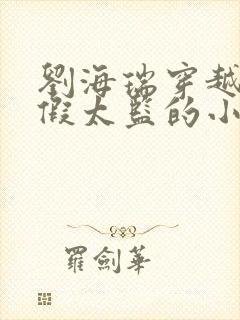 劉海瑞穿越
假太監的小
羅劍華